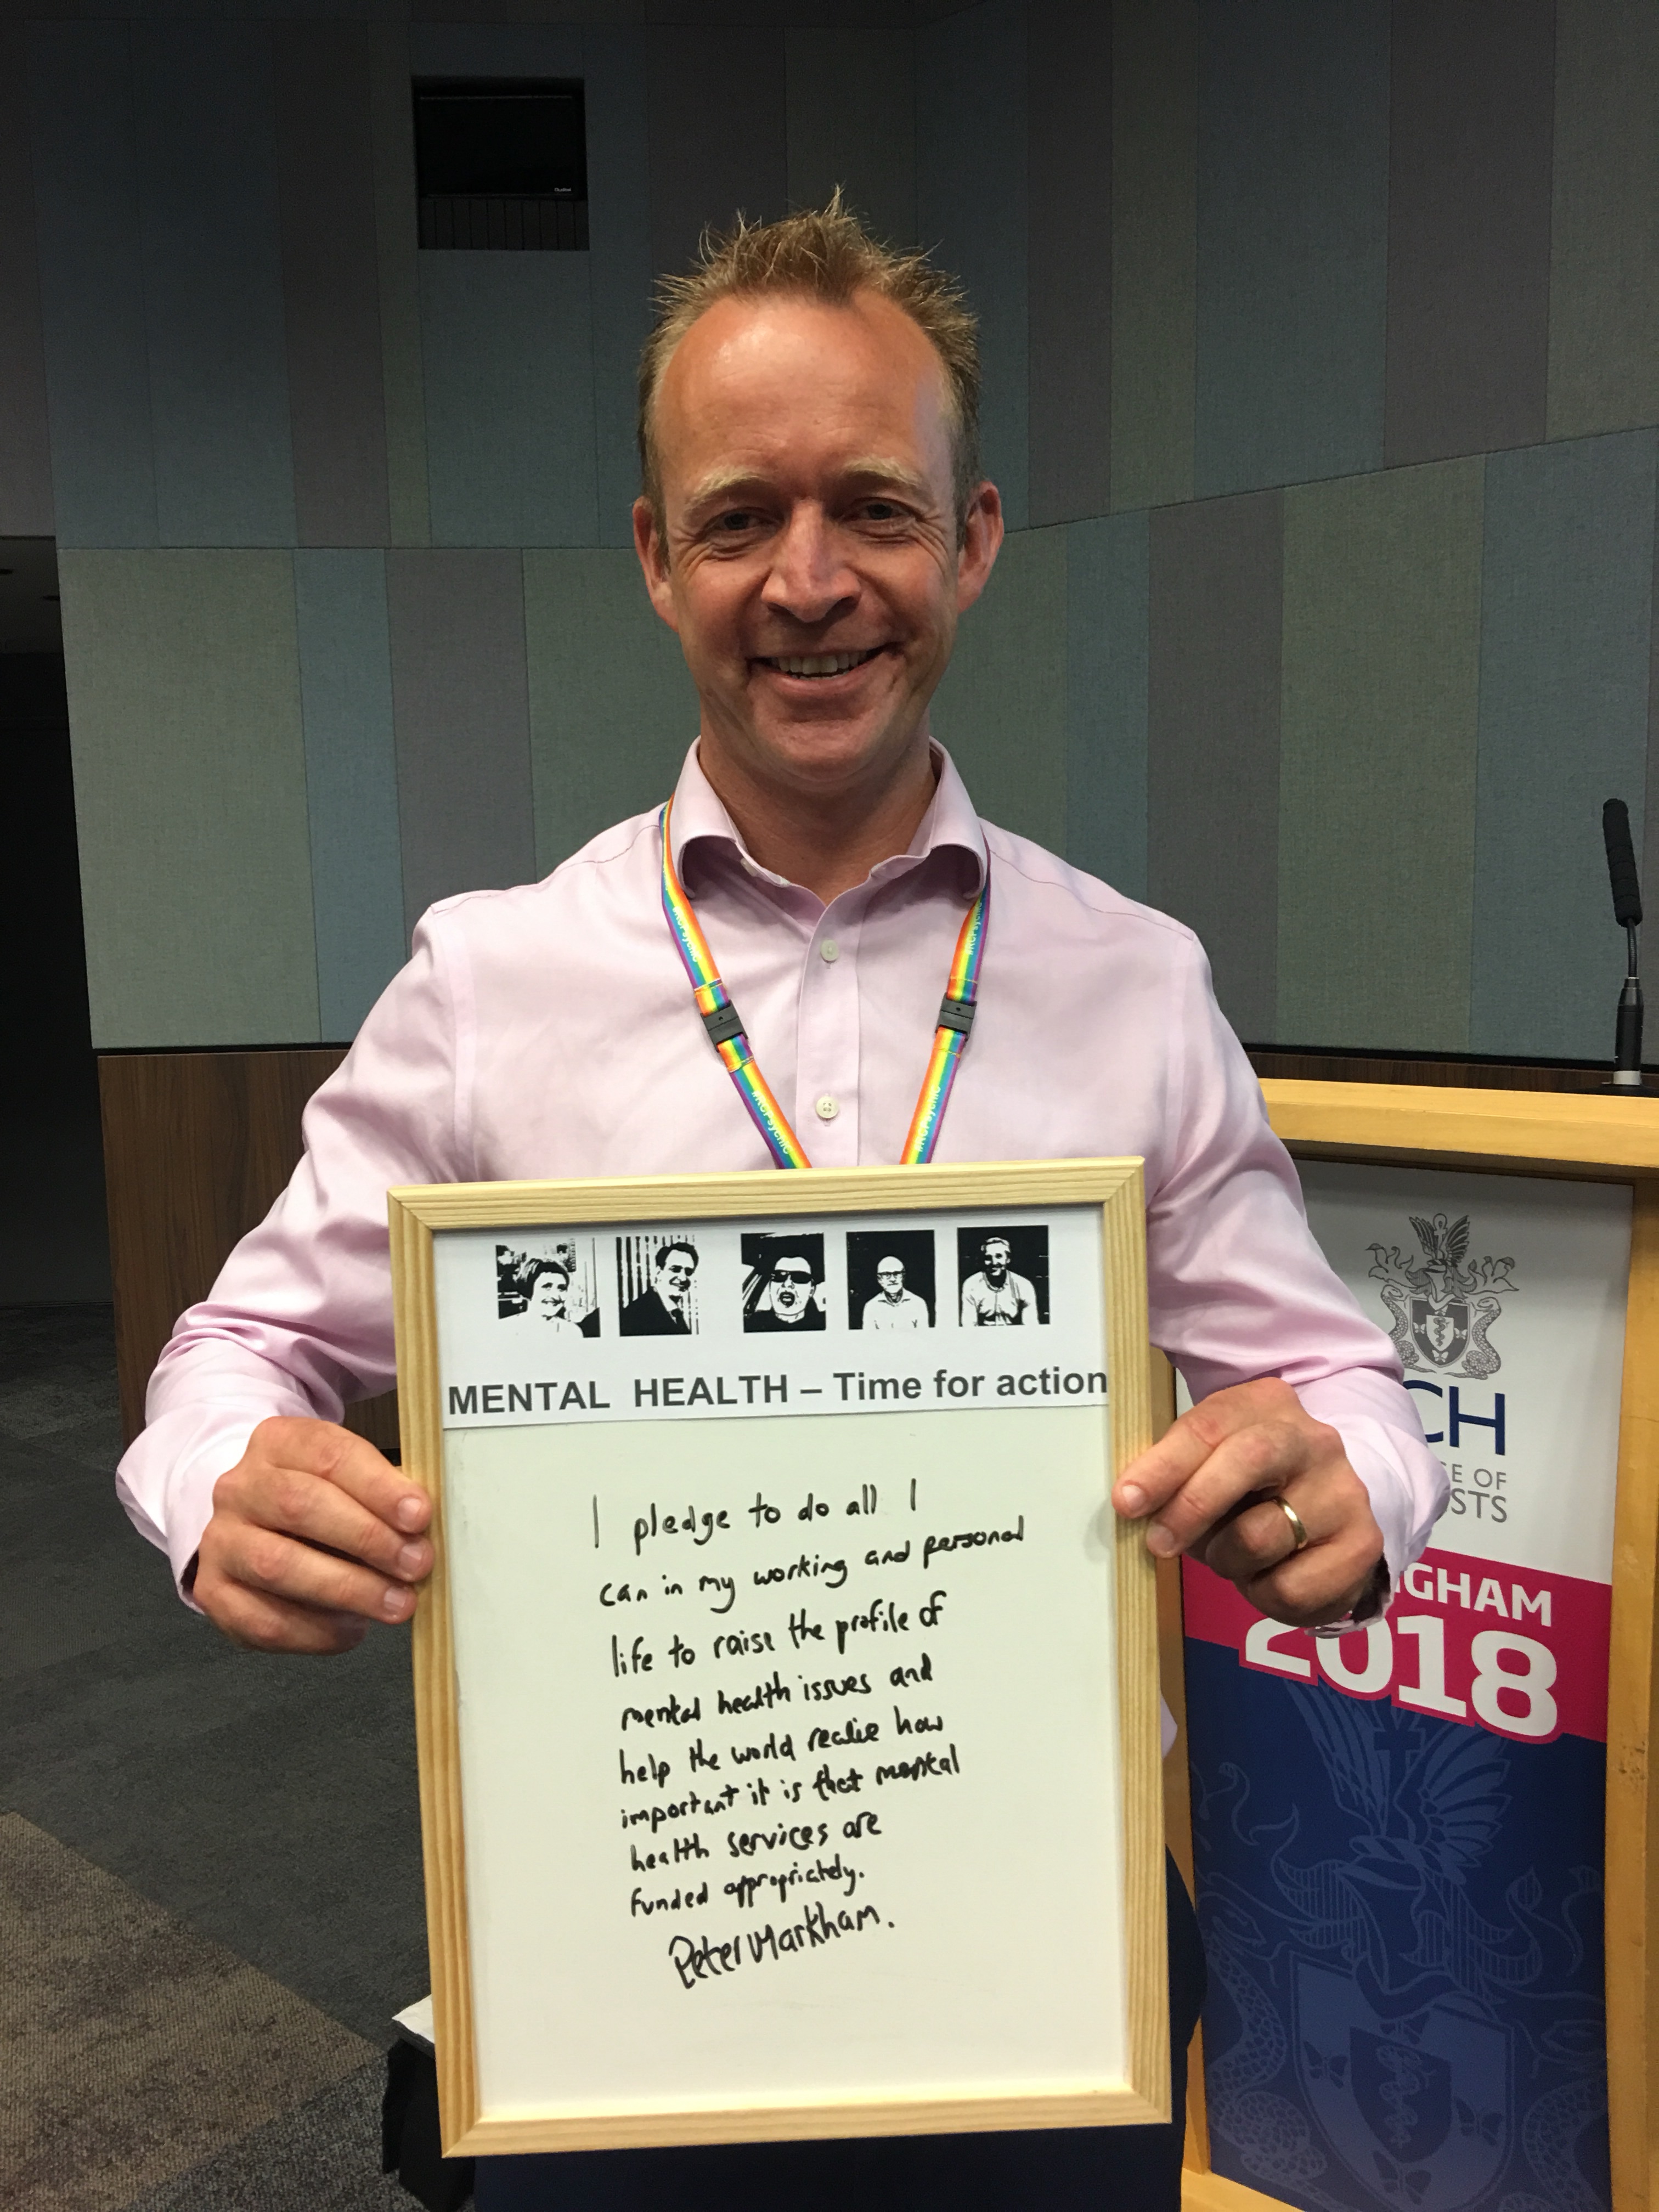 #RCPsychIC
#RCPsychIC
#RCPsychIC
#RCPsychIC
MENTAL HEALTH – Time for action
I pledge to do all I
can in my working and personal
life to raise the profile of
mental health issues and
help the world realise how
important it is that mental
health services are
funded appropriately.
Peter Markham.
CH
E OF
STS
NGHAM
2018